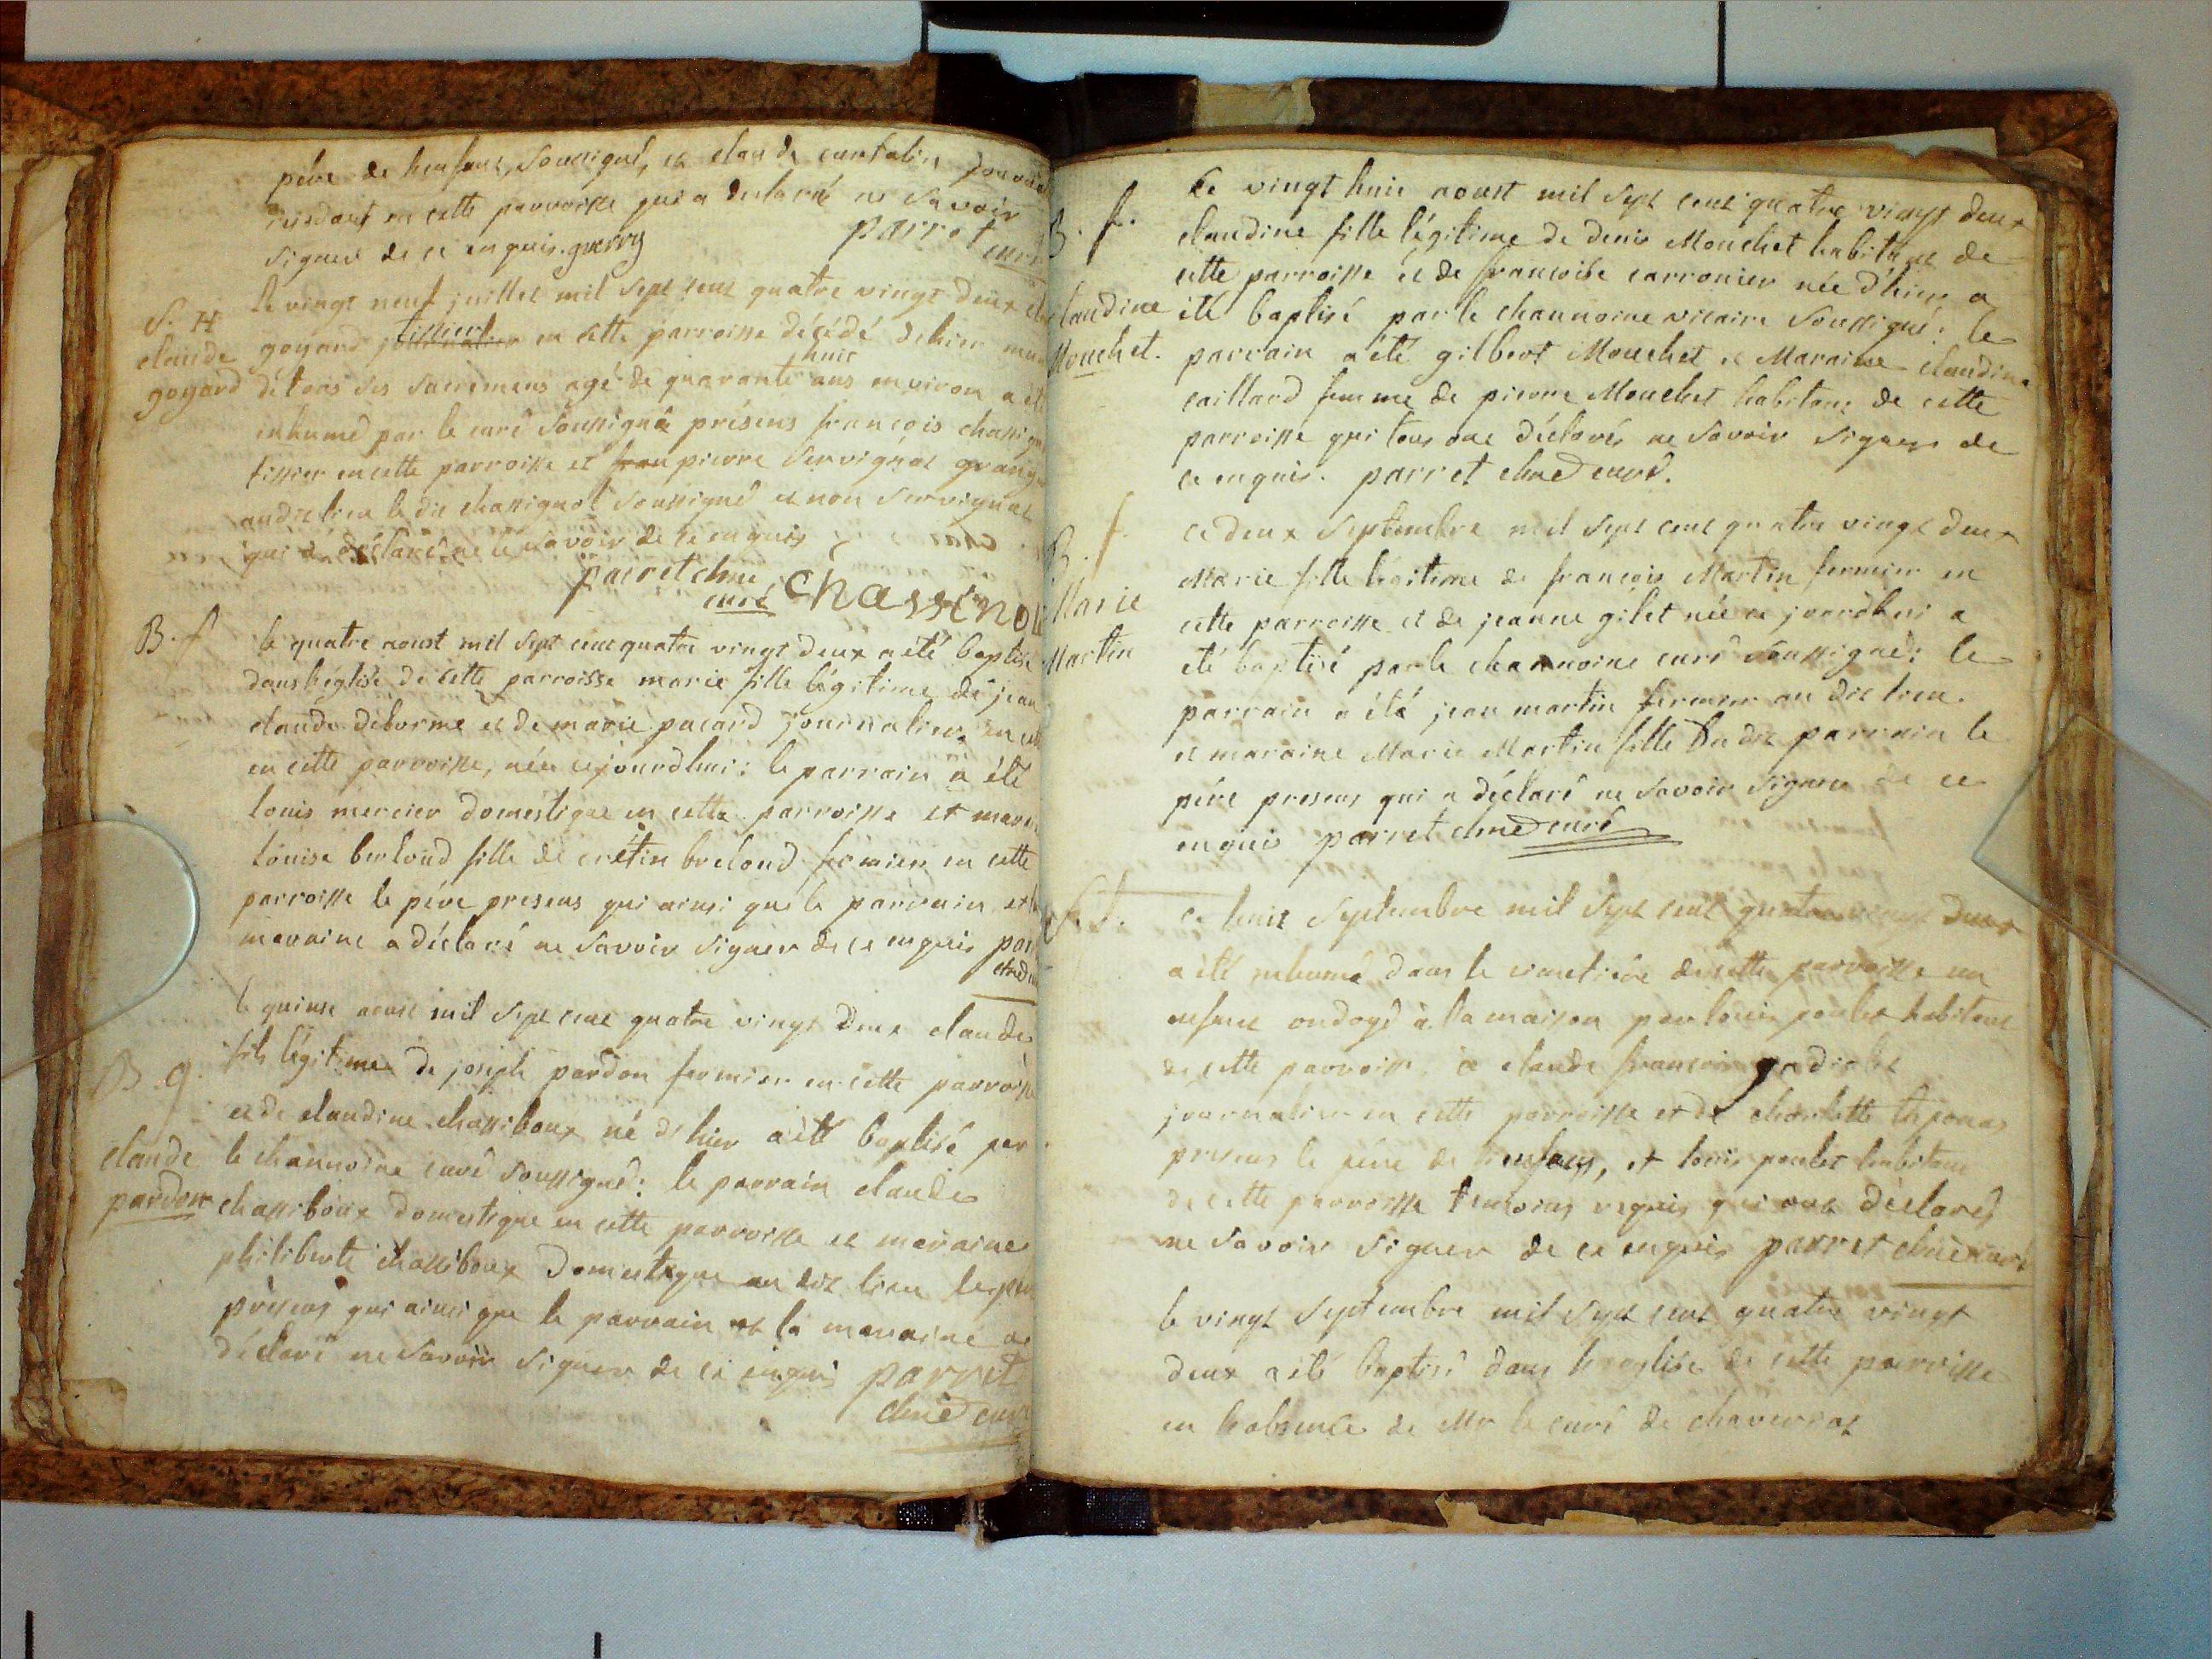 père de l'enfant, soussigné, et claude
résidant en cette parroisse qui a declaré ne savoir
signer de ce enquis. guerry parret curé
S. H
claude
goyard
le vingt neuf juillet mil sept cent quatre vingt deux
goyard tissier en cette parroisse décédé dehier
de tous ses sacremens agé de quarante huit ans environ a été
inhumé par le curé soussigné présens françois
tissier en cette parroisse et pierre servignat
audit lieu le dit chassignol soussigné et non servignat
qui a déclaré ne savoir de ce enquis
parret chne curé chassinol
B. f
le quatre aoust mil sept cent quatre vingt deux a été baptisé
dans l'église de cette parroisse marie fille légitime de jean
claude délorme et de marie pacard journalier
en cette parroisse, née cejourdhui : le parrain a été
louis mercier domestique en cette parroisse et
louise berloud fille de crétin breloud fermier en cette
parroisse le père présens qui ainsi que le parrain et
maraine a déclaré ne savoir signer de ce enquis
B. g.
claude
pardon
le quinse aoust mil sept cent quatre vingt deux claude
fils légitime de joseph pardon fermier en cette parroisse
et de claudine chassiboux né d'hier a été baptisé par
le channoine curé soussigné : le parrain claude
chassiboux domestique en cette parroisse et maraine
philiberte chassiboux domestique au dit lieu
présens qui ainsi que le parrain et la maraine
déclaré ne savoir signer de ce enquis parret
chne curé
B. f.
claudine
Mouchet.
le vingt huit aoust mil sept cent quatre vingt deux
claudine fille légitime de denis Mouchet habitant de
cette parroisse et de francoise carronier née d'hier a
été baptisé par le channoine vicaire soussigné : le
parrain a été gilbert Mouchet et Maraine claudine
caillard femme de pierre Mouchet habitant de cette
parroisse qui tous ont déclarés ne savoir signer de
ce enquis. parret chne curé.
B. f.
Marie
Martin
ce deux septembre mil sept cent quatre vingt deux
Marie fille légitime de françois Martin fermier en
cette parroisse et de jeanne gilet née ce jourdhui a
été baptisé par le channoine curé soussigné : le
parrain a été jean martin fermier au dit lieu.
et maraine Marie Martin fille du dit parrain le
père présens qui a déclaré ne savoir signer de ce
enquis parret chne curé
ce huit septembre mil sept cent quatre vingt deux
a été inhumé dans le cimetière de cette parroisse un
enfant ondoyé à la maison par louis poulet habitant
de cette parroisse à claude françois
journalier en cette parroisse et de charlotte
présens le père de l'enfant, et louis poulet habitant
de cette parroisse temoins requis qui ont déclarés
ne savoir signer de ce enquis parret chne curé
le vingt septembre mil sept cent quatre vingt
deux a été baptisé dans l'eglise de cette parroisse
en l'absence de Mr le curé de chaveriat